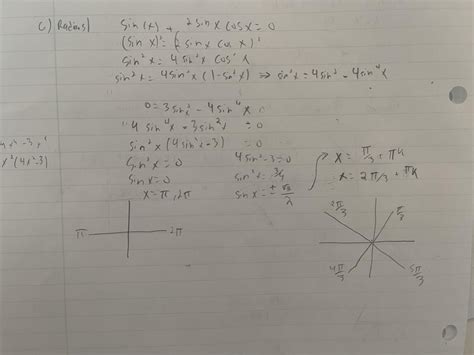 c) Radians) Sin(x) + 2 sin x cos x = 0
(Sin x)² = (2 sin x cos x)²
Sin²x = 4 sin²x cos²x
sin²x = 4 sin²x (1 - sin²x) ⇒ sin²x = 4 sin²x - 4 sin⁴x
0 = 3 sin²x - 4 sin⁴x
4 sin⁴x - 3 sin²x = 0
sin²x (4 sin²x - 3) = 0
x²(4x²-3)
Sin²x = 0 4 sin² - 3 = 0 x = π/3 + πk
sin x = 0 sin²x = 3/4 x = 2π/3 + πk
x = π, 2π sin x = ± √3/2
π 2π
2π/3 π/3
4π/3 5π/3